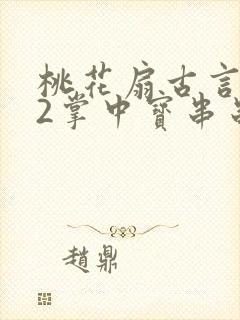 桃花扇古言
2掌中寶串
趙鼎